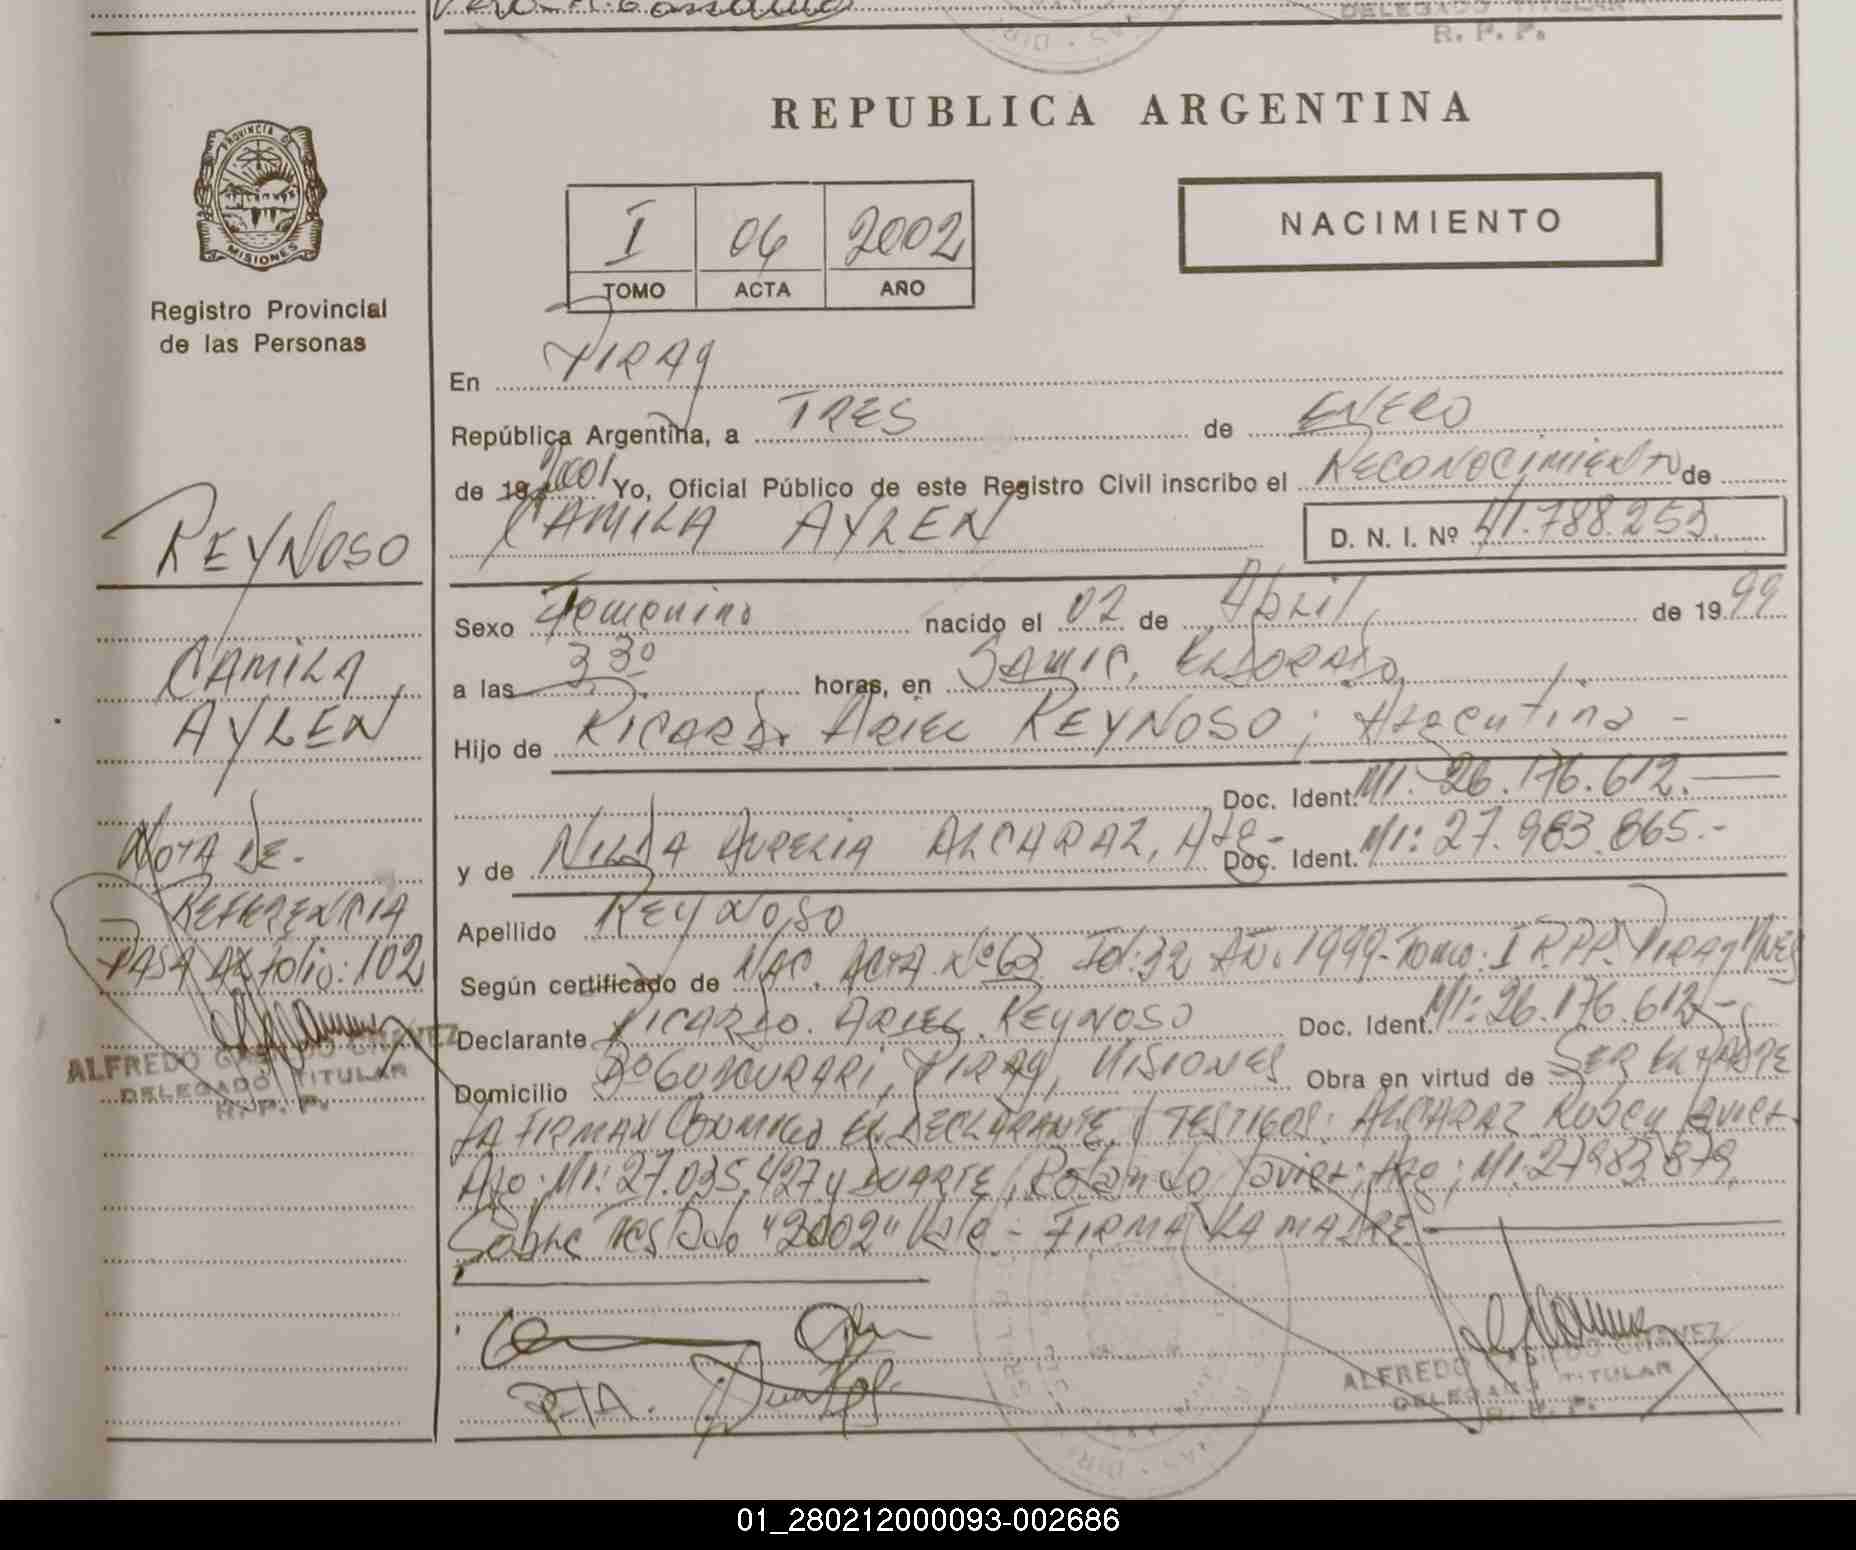 DELEGADO TITULAR
R. P. P.
REPUBLICA ARGENTINA
PROVINCIA DE
MISIONES
Registro Provincial
de las Personas
I 06 2002
TOMO ACTA AÑO
NACIMIENTO
En PIRAY
República Argentina, a TRES de ENERO
de 19 2001 Yo, Oficial Público de este Registro Civil inscribo el RECONOCIMIENTO de
CAMILA AYLEN D. N. I. Nº 41.788.253
REYNOSO
CAMILA
AYLEN
Sexo Femenino nacido el 02 de Abril de 1999
a las 3,30 horas, en SAMIC, ELDORADO
Hijo de RICARDO ARIEL REYNOSO; Argentina -
Doc. Ident. MI: 26.176.612.
y de NILDA AURELIA ALCARAZ, Arg- Doc. Ident. MI: 27.983.865.-
NOTA DE-
REFERENCIA
PASA AL folio: 102
ALFREDO CHAVEZ
DELEGADO TITULAR
R. P. P.
Apellido REYNOSO
Según certificado de NAC. ACTA Nº 63 Fol: 32 AÑO 1999- Tomo: I R.P.P. PIRAY Mnes
Declarante RICARDO ARIEL REYNOSO Doc. Ident. MI: 26.176.612-
Domicilio Bº GUSCURARI, PIRAY, MISIONES Obra en virtud de SER EL PADRE
FIRMAN CONMIGO EL DECLARANTE / TESTIGOS: ALCARAZ RUBEN Javier
Arg: MI: 27.035.427 y DUARTE, Rolando Javier; Arg; MI: 27983.879,
Sobre Testado "2002" Vale - FIRMA LA MADRE
ALFREDO CHAVEZ
DELEGADO TITULAR
R. P. P.
01_280212000093-002686